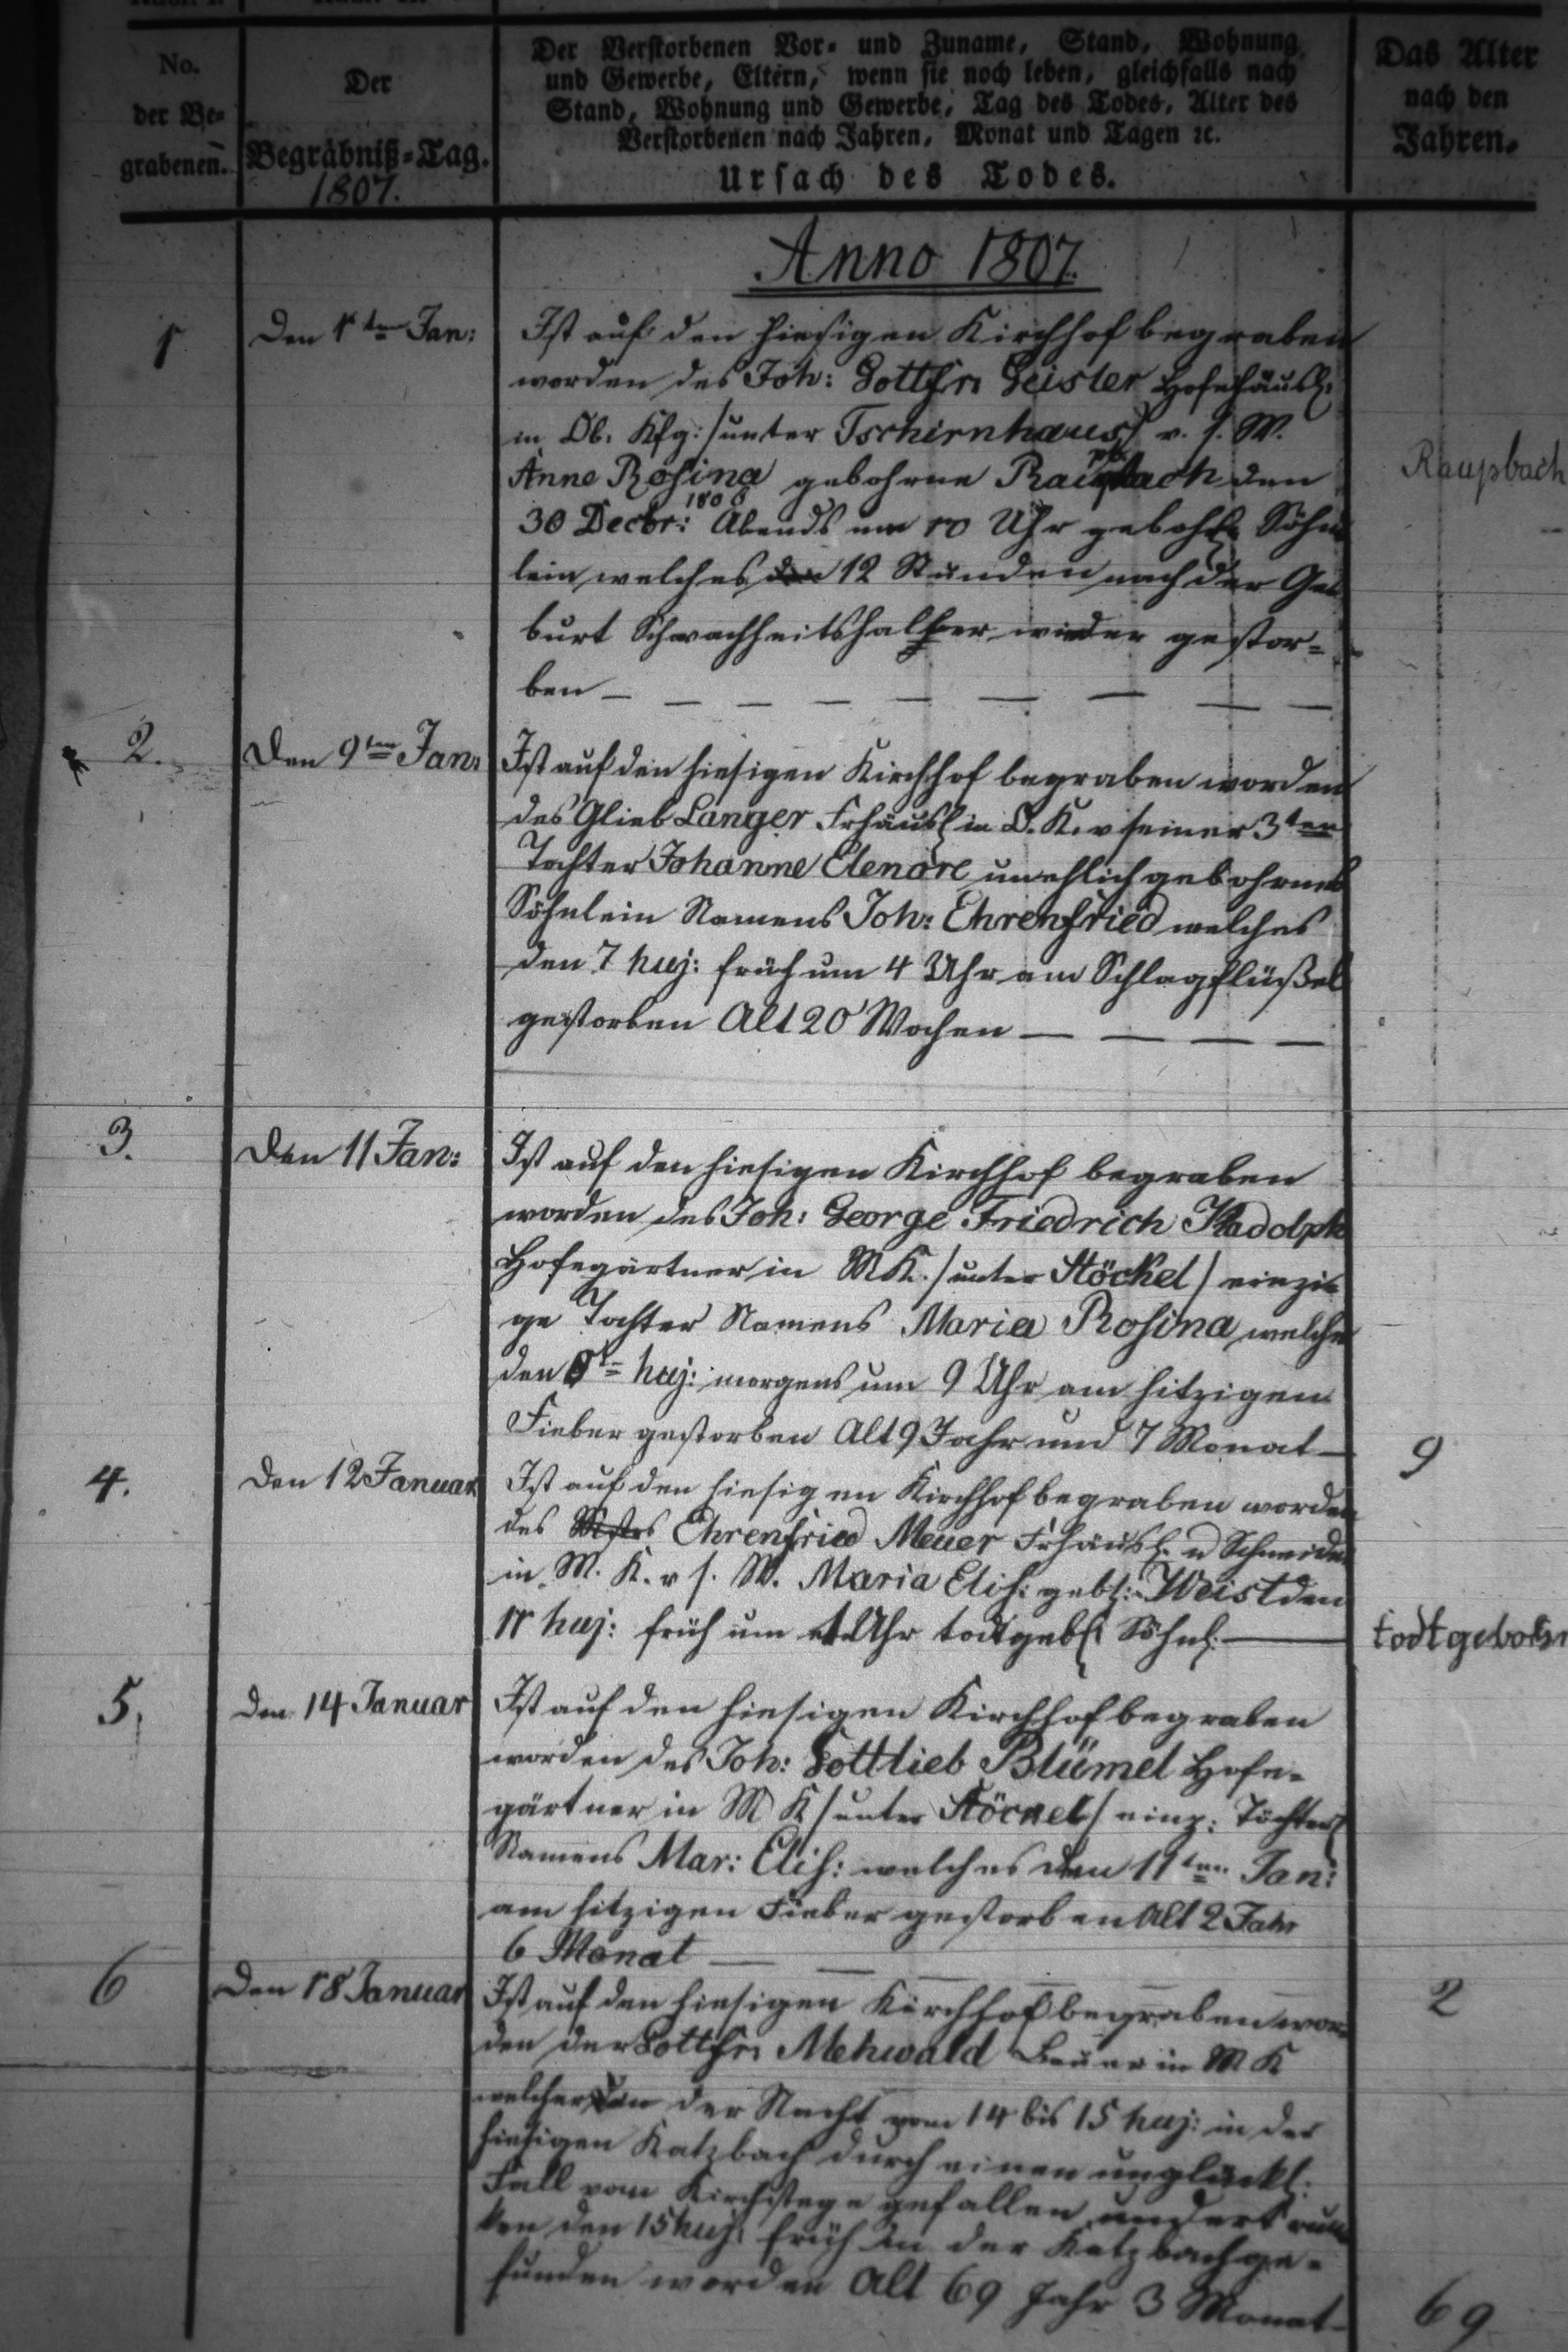 No.
der Be-
grabenen.
Der
Begräbniß-Tag.
1807.
Der Verstorbenen Vor- und Zuname, Stand, Wohnung
und Gewerbe, Eltern, wenn sie noch leben, gleichfalls nach
Stand, Wohnung und Gewerbe, Tag des Todes, Alter des
Verstorbenen nach Jahren, Monat und Tagen ꝛc.
Ursach des Todes.
Das Alter
nach den
Jahren.
Anno 1807.
1
Den 1ten Jan:
Ist auf den hiesigen Kirchhof begraben
worden des Joh: Gottfr: Geisler Hofehäusl:
in Ob. Kfg: /unter Tschirnhaus/ v. s. W.
Anne Rosina gebohrne Raupbach den
Raupsbach
30 Decbr: 1806 Abends um 10 Uhr gebohr: Söhn
lein welches 12 Stunden nach der Ge
burt Schwachheitshalber wieder gestor=
ben
2.
Den 9ten Jan:
Ist auf den hiesigen Kirchhof begraben worden
des Glieb Langer Frhäusl in O. K. v seiner 3ten
Tochter Johanne Elenore unehlich gebohrnes
Söhnlein Namens Joh: Ehrenfried welches
den 7 huj: früh um 4 Uhr am Schlagflüßel
gestorben Alt 20 Wochen
3.
Den 11 Jan:
Ist auf den hiesigen Kirchhof begraben
worden des Joh: George Friedrich
Hofegärtner in M K. /unter Stöckel/ einzi
ge Tochter Namens Maria Rosina welche
den huj: morgens um 9 Uhr am hitzigen
Fieber gestorben Alt 9 Jahr und 7 Monat
9
4.
Den 12 Januar
Ist auf den hiesigen Kirchhof begraben worden
des Ehrenfried Meuer Frhäusl. u Schneider
in M. K. v s. W. Maria Elis: gebl: Weist den
11 huj: früh um Uhr todtgebl: Söhnl:
todtgebohr
5.
Den 14 Januar
Ist auf den hiesigen Kirchhof begraben
worden des Joh: Gottlieb Blümel Hofe-
gärtner in M K /unter Stöckel/ einz: Töchterl
Namens Mar: Elis: welches den 11ten Jan:
am hitzigen Fieber gestorben Alt 2 Jahr
6 Monat
2
6
Den 18 Januar
Ist auf den hiesigen Kirchhof begraben wor-
den der Gottfr: Mehwald Bauer in M K
welcher in der Nacht vom 14 bis 15 huj: in der
hiesigen Katzbach durch einen unglückl:
Fall vom Kirchstege gefallen und ertrun
ken den 15 huj: früh in der Katzbach ge-
funden worden Alt 69 Jahr 3 Monat
69